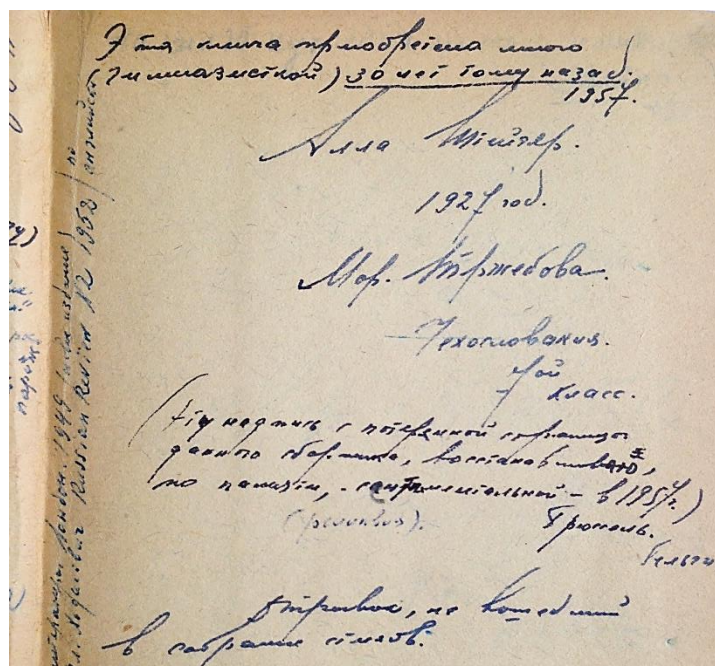 Эта книга приобретена мною
(гимназисткой) 30 лет тому назад.
1957.
Алла
1927 год.
Мор. Тржебова.
Чехословакия.
7ой
класс.
(Эту надпись с потерянной страницы
данного сборника, восстанавливаю,
по памяти, - сентиментальной - в 1957г.)
(реликвия).
Брюссель.
Бельгия
Отрывок, не вошедший
в собрание стихов.
Лондон. 1949
Russian Review № 2 1952